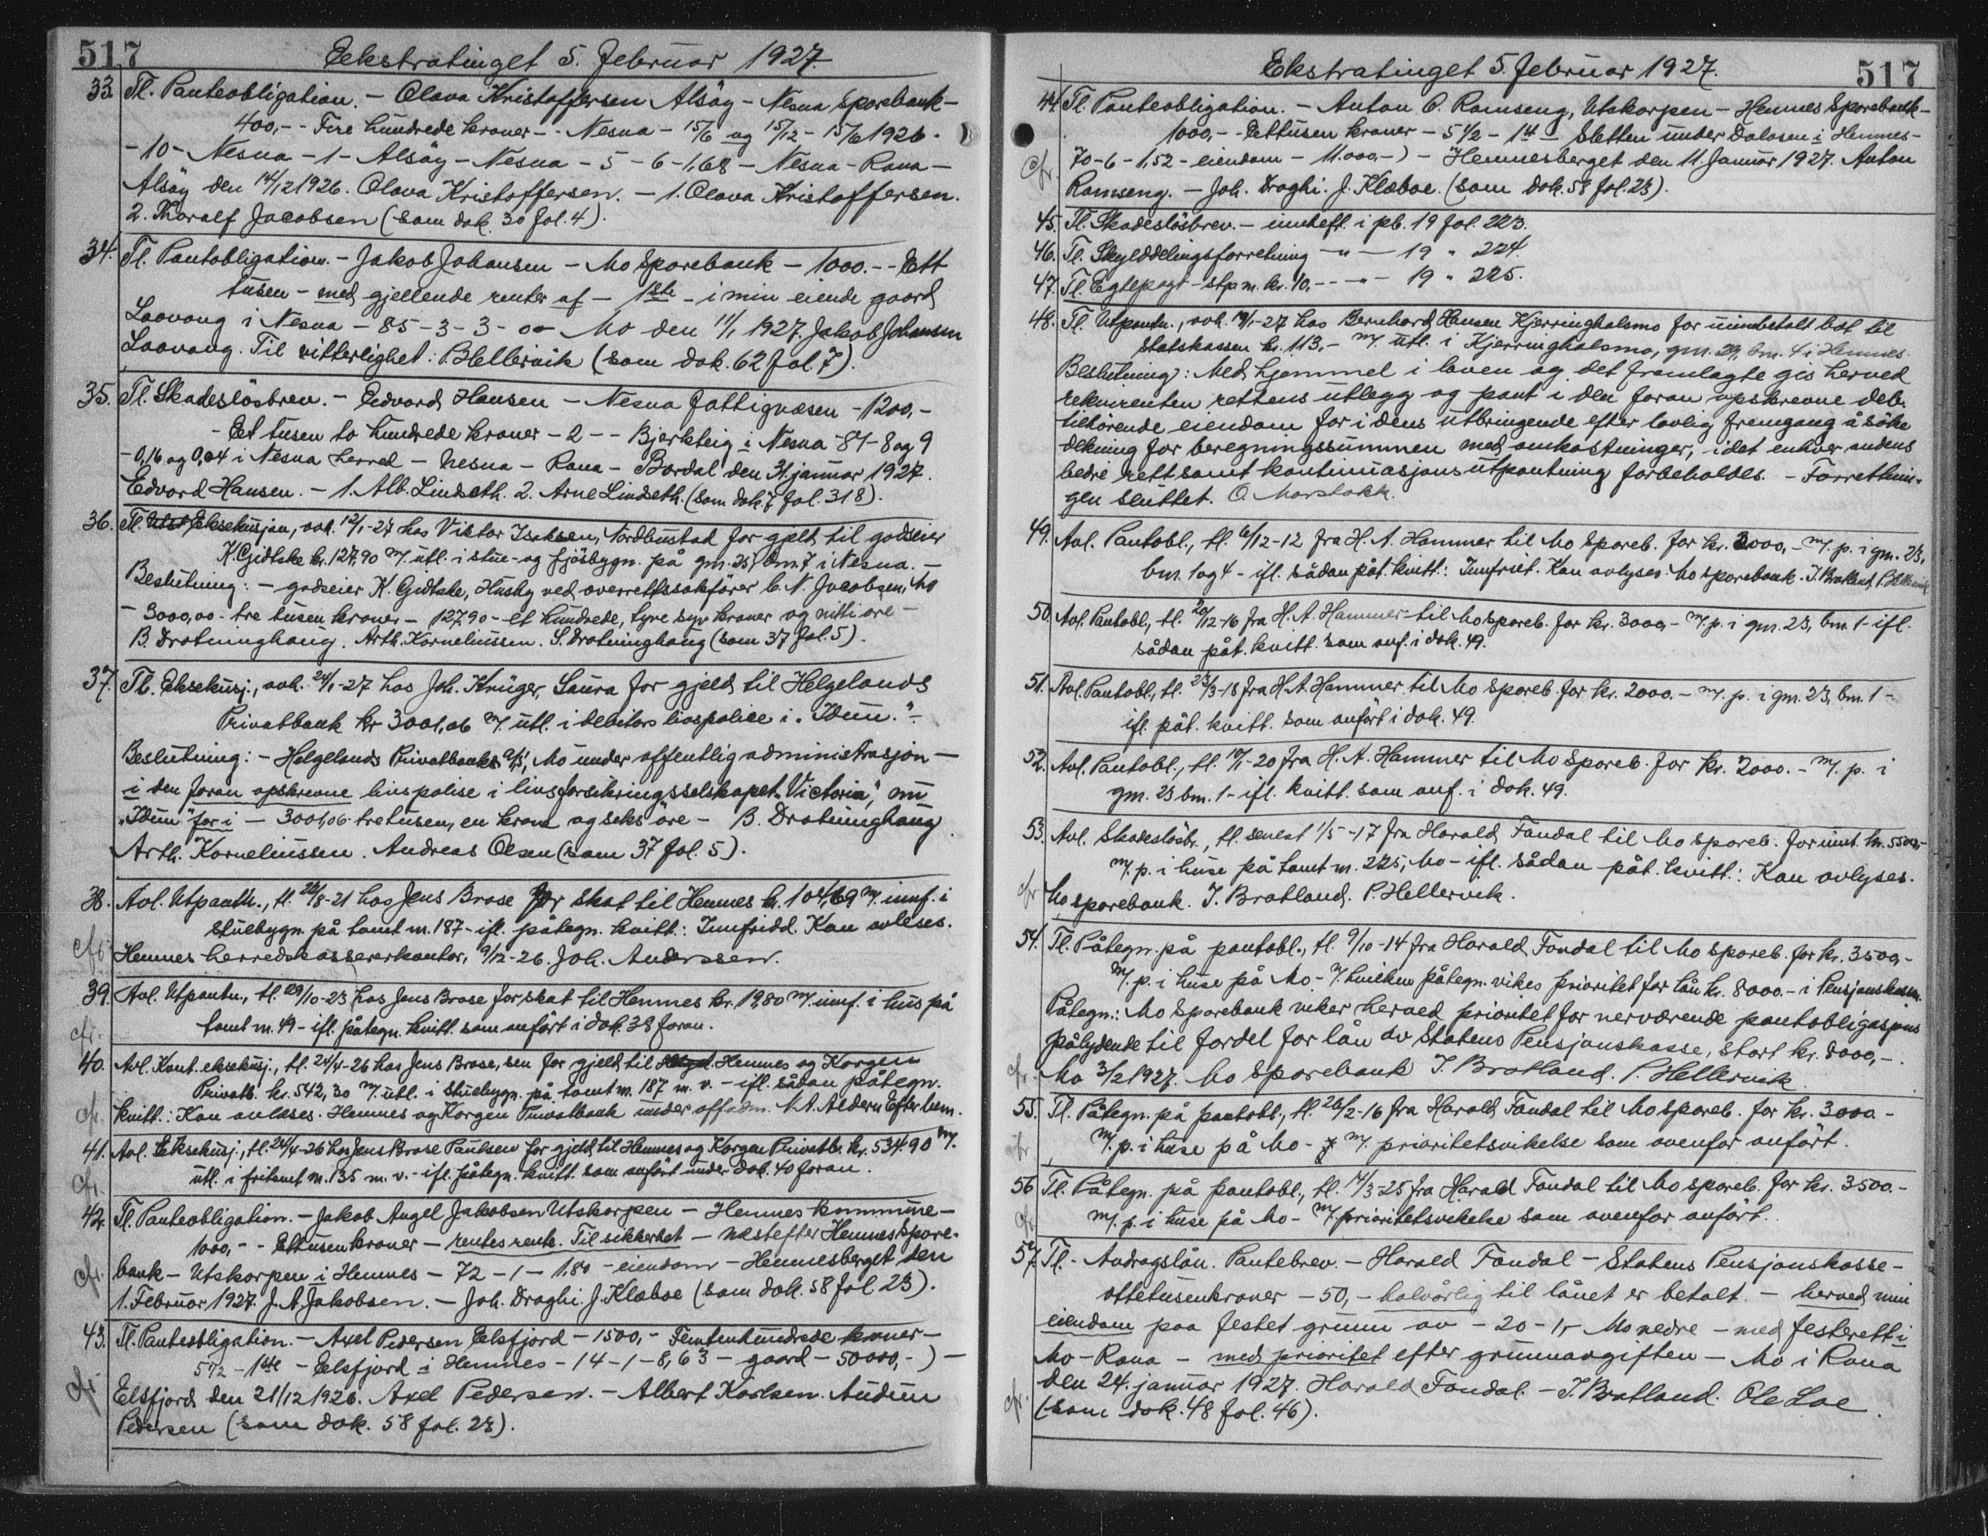 517
Eekstratinget 5. Februar 1927.
33. Tl. Panteobligation. – Olava Kristoffersen Alsöy – Nesna Sparebank –
400,– – Fire hundrede kroner – – Nesna – 15/6 og 15/12 – 15/6 1926.
– 10 – Nesna – 1 – Alsöy – Nesna – 5 – 6 – 1,68 – Nesna – Rana –
Alsöy den 14/12 1926. Olava Kristoffersen. – 1. Olava Kristoffersen.
2. Thoralf Jacobsen (som dok. 30 fol. 4).
34. Tl. Pantobligation. – Jakob Johansen – Mo Sparebank – 1000. – – Ett
tusen – med gjellende renter af – 1ste – i min eiende gaard
Laavong i Nesna – 85 – 3 – 3 – 00 – Mo den 11/1 1927. Jakob Johansen
Laavong. Til vitterlighet: P. Hellervik (som dok. 62 fol. 7).
35. Tl. Skadeslösbrev. – Edvard Hansen – Nesna Fattigvæsen – 1200,–
– Et tusen to hundrede kroner – 2 – – Bjerkteig i Nesna – 87 – 8 og 9
– 0,16 og 0,04 i Nesna herred – Nesna – Rana – Bardal den 31. januar 1927.
Edvard Hansen. – 1. Alb. Lindseth. 2. Arne Lindseth. (som dok. 7 fol. 318).
36. Tl. Eksekusjon, avh. 12/1-27 hos Viktor Isaksen, Nordbustad for gjeld til godseier
K. Gidtske kr. 127,90 m/ utl. i stue- og fjösbygn. på gm. 25, bm. 7 i Nesna. –
Beslutning: – godseier K. Gidtske, Husby ved overrettssakförer C. N. Jacobsen, Mo
– 3000,00 – tre tusen kroner – 127,90 – et hundrede, tyve syv kroner og nitti öre –
B. Drotninghaug. Arth. Korneliussen. S. Drotninghaug (som 37 fol. 5).
37. Tl. Eksekusj., avh. 24/1-27 hos Joh. Krüger, Saura for gjeld til Helgelands
Privatbank kr 3001,06 m/ utl. i debitors livspolice i „Idun.“ –
Beslutning: – Helgelands Privatbank A/S, Mo under offentlig administrasjon –
i den foran opskrevne livspolise i livsforsikringsselskapet „Victoria“, nu
„Idun“ for i – 3001,06 tretusen, en krone og seks öre – B. Drotninghaug
Arth. Korneliussen. Andreas Olsen (som 37 fol. 5).
38. Avl. Utpantn., tl. 23/8-21 hos Jens Brose for skat til Hemnes kr. 104,69 m/ innf. i
stuebygn. på tomt m. 187 – ifl. påtegn. kvitt: Innfridd. Kan avleses.
cfr. Hemnes herredskassererkontor, 9/12-26. Joh. Anderssen.
39. Avl. Utpantn., tl. 29/10-23 hos Jens Brose for skat til Hemnes kr. 19,80 m/ innf. i hus på
cfr. tomt m. 49 – ifl. påtegn. kvitt. som anfört i dok. 38 foran.
40. Avl. Kont. eksekusj., tl. 24/4-26 hos Jens Brose, sen for gjeld til Hemnes og Korgen
Privatb. kr. 542,30 m/ utl. i stuebygn. på tomt m. 187 m. v. – ifl. sådan påtegn.
cfr. kvitt.: Kan avleses. Hemnes og Korgen Privatbank under off. adm.
41. Avl. Eksekusj., tl. 24/4-26 hos Jens Brose Paulsen for gjeld til Hemnes og Korgen Privatb. kr. 534,90 m/
cfr. utl. i fritomt m. 135 m. v. – ifl. påtegn. kvitt. som anfört under dok. 40 foran.
42. Tl. Panteobligation. – Jakob Angel Jakobsen Utskarpen – Hemnes kommune –
1000,– – Ettusen kroner – rentes rente. Til sikkerhet – næstefter Hemnes Spare-
cfr. bank – Utskarpen i Hemnes – 72 – 1 – 1,80 – eiendom – Hemnesberget den
1. Februar 1927. J. A. Jakobsen. – Joh. Draghi. J. Klæboe (som dok. 58 fol. 23).
43. Tl. Panteobligation. – Axel Pedersen Elsfjord – 1500,– Femtenhundrede kroner –
5 1/2 – 1ste – Elsfjord i Hemnes – 14 – 1 – 8,63 – gaard – 50000,– ) –
cfr. Elsfjord den 21/12 1926. Axel Pedersen. – Albert Karlsen. Audun
Pedersen (som dok. 58 fol. 23).
Ekstratinget 5. Februar 1927.
517
44. Tl. Panteobligation. – Anton O. Ramseng, Utskarpen – Hemnes Sparebank –
1000,– – Ettusen kroner – 5 1/2 – 1ste – Sletten under Dalosen i Hemnes –
cfr. 70 – 6 – 1,52 – eiendom – 11.000,– ) – Hemnesberget den 11. Januar 1927. Anton
Ramseng. – Joh. Draghi. J. Klæboe. (som dok. 58 fol. 23).
45. Tl. Skadeslösbrev. – innheft. i pb. 19 fol. 223.
46. Tl. Skylddelingsforretning – „ – 19 „ 224.
47. Tl. Egtepagt – stpm. kr. 10,– – – „ – 19 „ 225.
48. Tl. Utpantn., avh. 19/1-27 hos Bernhard Hansen Kjerringhalsmo for uinnbetalt bot til
statskassen kr. 113,– m/ utl. i Kjerringhalsmo, gm. 29, bm. 4 i Hemnes.
Beslutning: Med hjemmel i loven og det fremlagte gis herved
rekvirenten rettens utlegg og pant i den foran opskrevne deb.
tilhörende eiendom for i dens utbringende efter lovlig fremgang å söke
dekning for beregningssummen med omkostninger, idet enhver andens
bedre rett samt kontinuasjons utpantning forbeholdes. – Forretnin-
gen sluttet. O Marstokk.
49. Avl. Pantobl., tl. 6/12-12 fra H. A. Hammer til Mo Spareb. for kr. 2000,– m/ p. i gm. 23,
bm. 1 og 4 – ifl. sådan påt. kvitt: Innfriet. Kan avlyses. Mo sparebank. I. Bratland, P. Hellervik.
50. Avl. Pantobl., tl. 20/12-16 fra H. A. Hammer til Mo spareb. for kr. 3000,– m/ p. i gm. 23, bm. 1 – ifl.
sådan påt. kvitt. som anf. i dok. 49.
51. Avl. Pantobl., tl. 23/3-18 fra H. A. Hammer til Mo spareb. for kr. 2000. – m/ p. i gm. 23, bm. 1 –
ifl. påt. kvitt. som anfört i dok. 49.
52. Avl. Pantobl., tl. 10/1-20 fra H. A. Hammer til Mo Spareb. for kr. 2000. – m/ p. i
gm. 23 bm. 1 – ifl. kvitt. som anf. i dok. 49.
53. Avl. Skadeslösbr., tl. senest 1/5-17 fra Harald Fondal til Mo spareb. for inntil kr. 5500,–
m/ p. i huse på tomt m. 225, Mo – ifl. sådan påt. kvitt.: Kan avlyses.
cfr Mo sparebank. I. Bratland. P. Hellervik.
54. Tl. Påtegn. på pantobl., tl. 9/10-14 fra Harald Fondal til Mo spareb. for kr. 3500,–
m/ p. i huse på Mo – v/ hvilken påtegn. vikes prioritet for lån kr. 8000. – i Pensjonskassen.
Påtegn.: Mo Sparebank viker herved prioritet for nerværende pantobligasjons
pålydende til fordel for lån av Statens Pensjonskasse, stort kr. 8000,–.
cfr. Mo 3/2 1927. Mo Sparebank I. Bratland. P. Hellervik.
55. Tl. Påtegn. på pantobl., tl. 26/2-16 fra Harald Fondal til Mo spareb. for kr. 3000. –
cfr. m/ p. i huse på Mo – m/ prioritetsvikelse som ovenfor anfört.
56. Tl. Påtegn. på pantobl., tl. 14/3-25 fra Harald Fondal til Mo spareb. for kr. 3500. –
cfr. m/ p. i huse på Mo – m/ prioritetsvikelse som ovenfor anfört.
57. Tl. – Avdragslån. Pantebrev. – Harald Fondal – Statens Pensjonskasse –
ottetusenkroner – 50,– halvårlig til lånet er betalt. – herved min
eiendom paa festet grunn av – 20 – 1, – Mo nedre – med festerett i
Mo – Rana – med prioritet efter grunnavgiften – Mo i Rana
den 24. januar 1927. Harald Fondal. – I. Bratland. Ole Loe.
cfr. (som dok. 48 fol. 46).